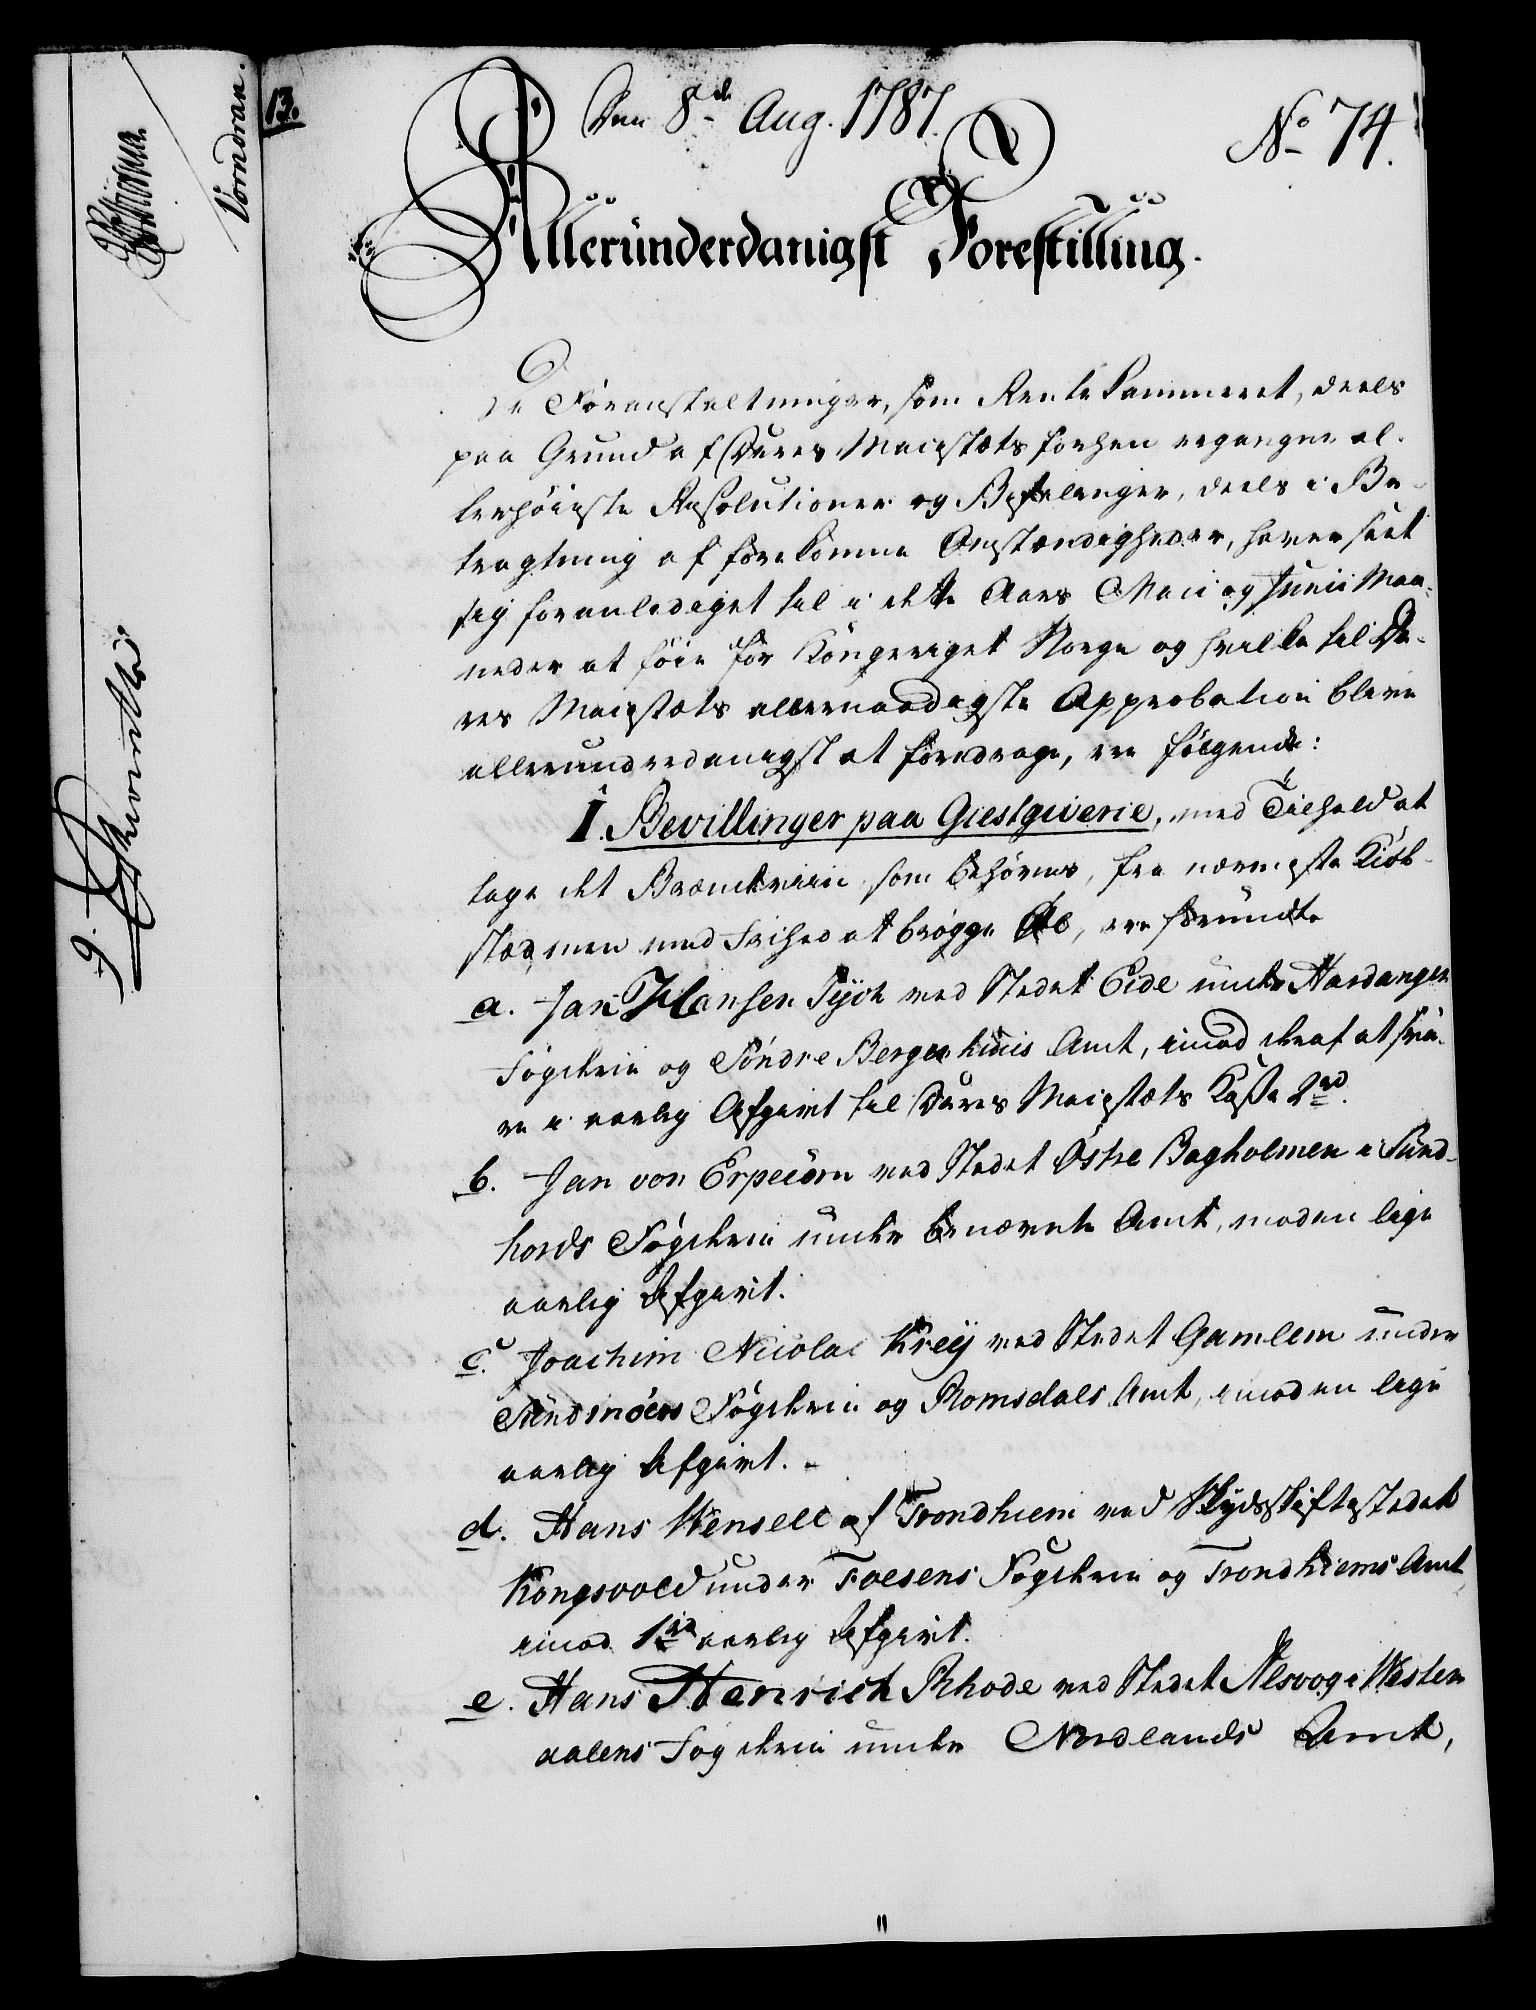 13.
Den 8de Aug. 1787.
No 74.
Allerunderdanigst Forestilling.
De Foranstaltninger, som Rentekammeret, deels
paa Grund af Deres Majestæts forhen ergangne al-
lerhöieste Resolutioner og Befalinger, deels i Be-
tragtning af forekomne Omstændigheder, haver seet
sig foranlediget til i dette Aars Maii og Junii Maa-
neder at föie for Kongeriget Norge og hvilke til De-
res Majestæts allernaadigste Approbation bleve
allerunderdanigst at foredrage, ere fölgende:
I. Bevillinger paa Giestgiverie, med Tilhold at
tage det Brændeviin, som behöves, fra nærmeste Kiöb-
stæd, men med Frihed at brögge Öl, ere forundte
a. Jan Hansen Fyse ved Stedet Eide under Hardanger
Fogderie og Söndre Bergenhuus Amt, imod deraf at sva-
re i aarlig Afgivt til Deres Majestæts Kasse 2 rd.
b. Jan von Erpecom ved Stedet Östre Bagholmen i Sund-
hords Fogderie under benævnte Amt, mod en lige
aarlig Afgivt.
c. Joachim Nicolai Kreÿ ved Stedet Gamlem under
Sundmöers Fogderie og Romsdals Amt, imod en lige
aarlig Afgivt. -
d. Hans Wensell af Trondhiem ved Skydsskiftestedet
Kongsvold under Foesens Fogderie og Trondhiems Amt
imod 1 rd aarlig Afgivt.
e. Hans Henrich Rhode ved Stedet Nesvog i Wester-
aalens Fogderie under Nordlands Amt,
Vorndran.